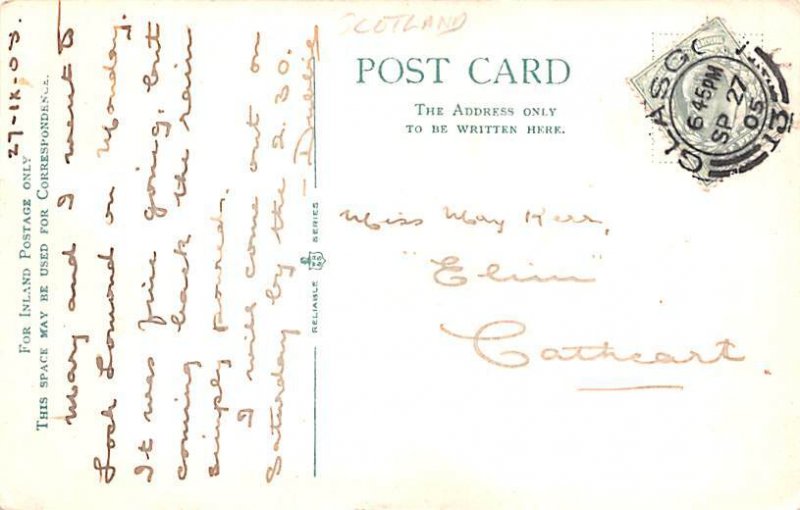 SCOTLAND
POST CARD
THE ADDRESS ONLY
TO BE WRITTEN HERE.
GLASGOW
6 45 PM
SP 27
05
13
Miss May Kerr,
"Elim"
Cathcart.
RELIABLE SERIES
FOR INLAND POSTAGE ONLY
THIS SPACE MAY BE USED FOR CORRESPONDENCE.
Mary and I went to
Loch Lomond on Monday.
It was fine going, but
coming back the rain
simply poured.
I will come out on
Saturday by the 2.30.